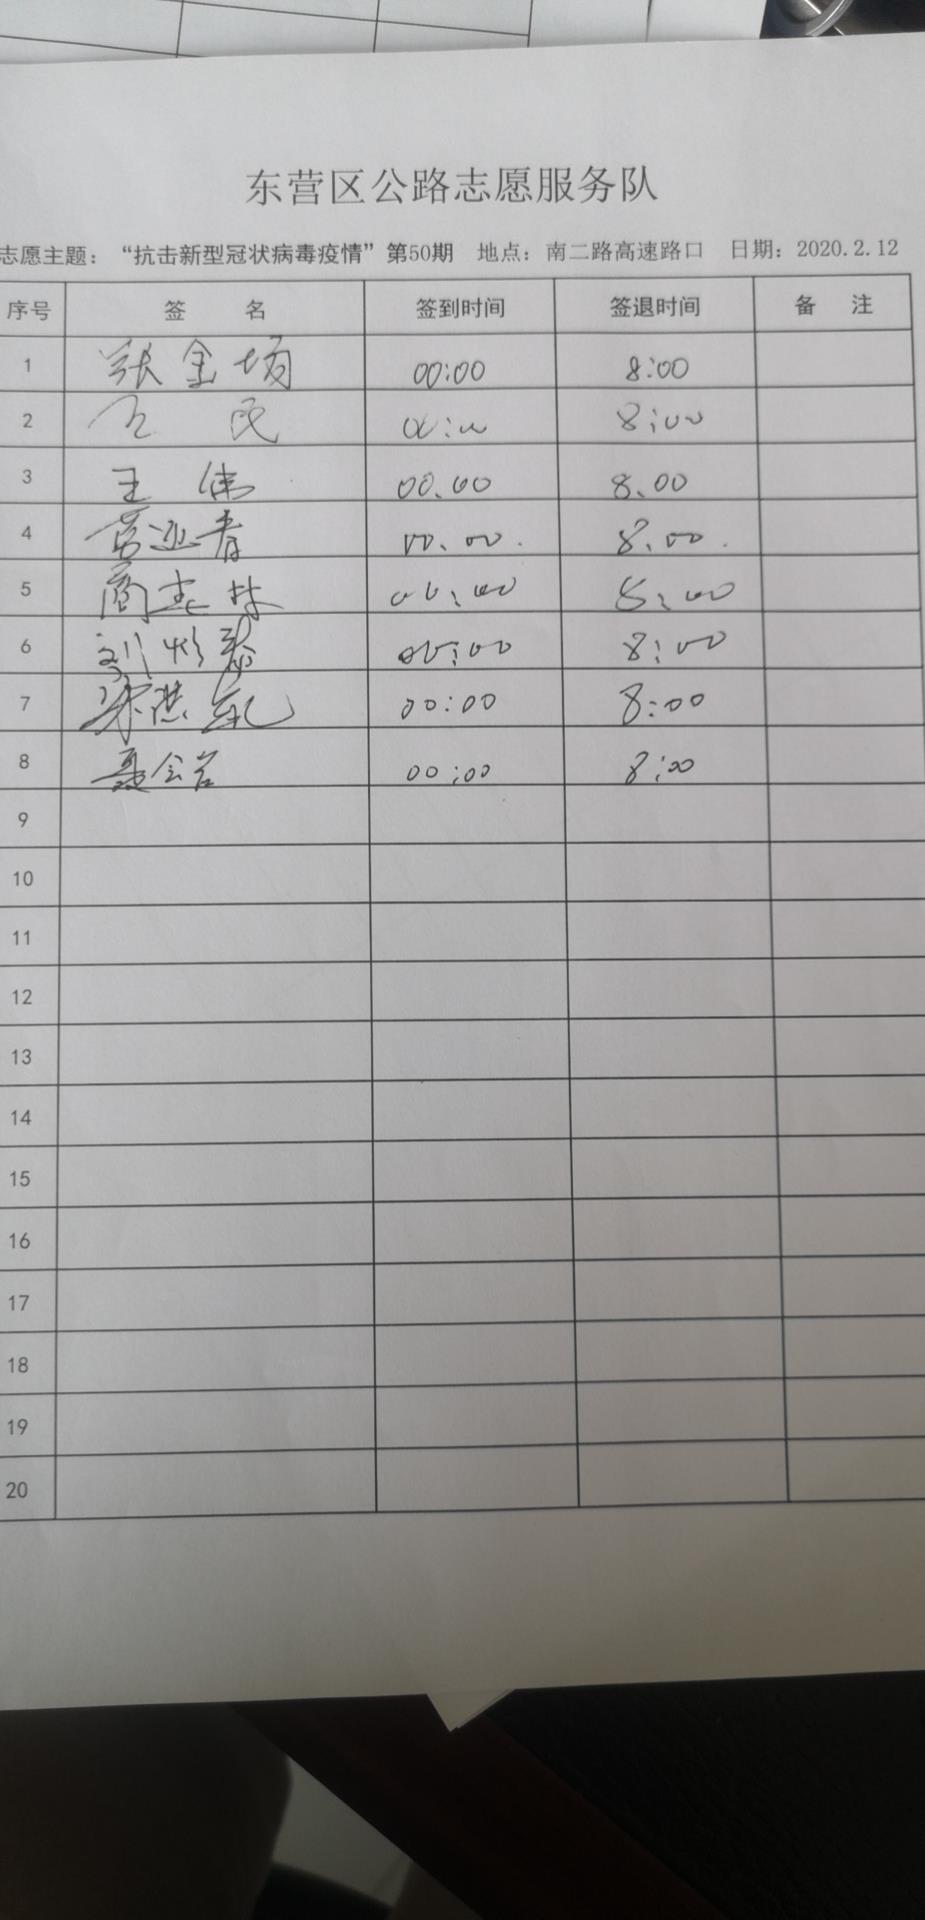 东营区公路志愿服务队
志愿主题：“抗击新型冠状病毒疫情”第50期 地点：南二路高速路口 日期：2020.2.12
序号 签 名 签到时间 签退时间 备 注
1 张金场 00:00 8:00
2 民 00:00 8:00
3 王伟 00.00 8.00
4 迎春 00.00. 8.00.
5 商志林 00:00 8:00
6 刘 00:00 8:00
7 宋 00:00 8:00
8 聂会岩 00:00 8:00
9
10
11
12
13
14
15
16
17
18
19
20